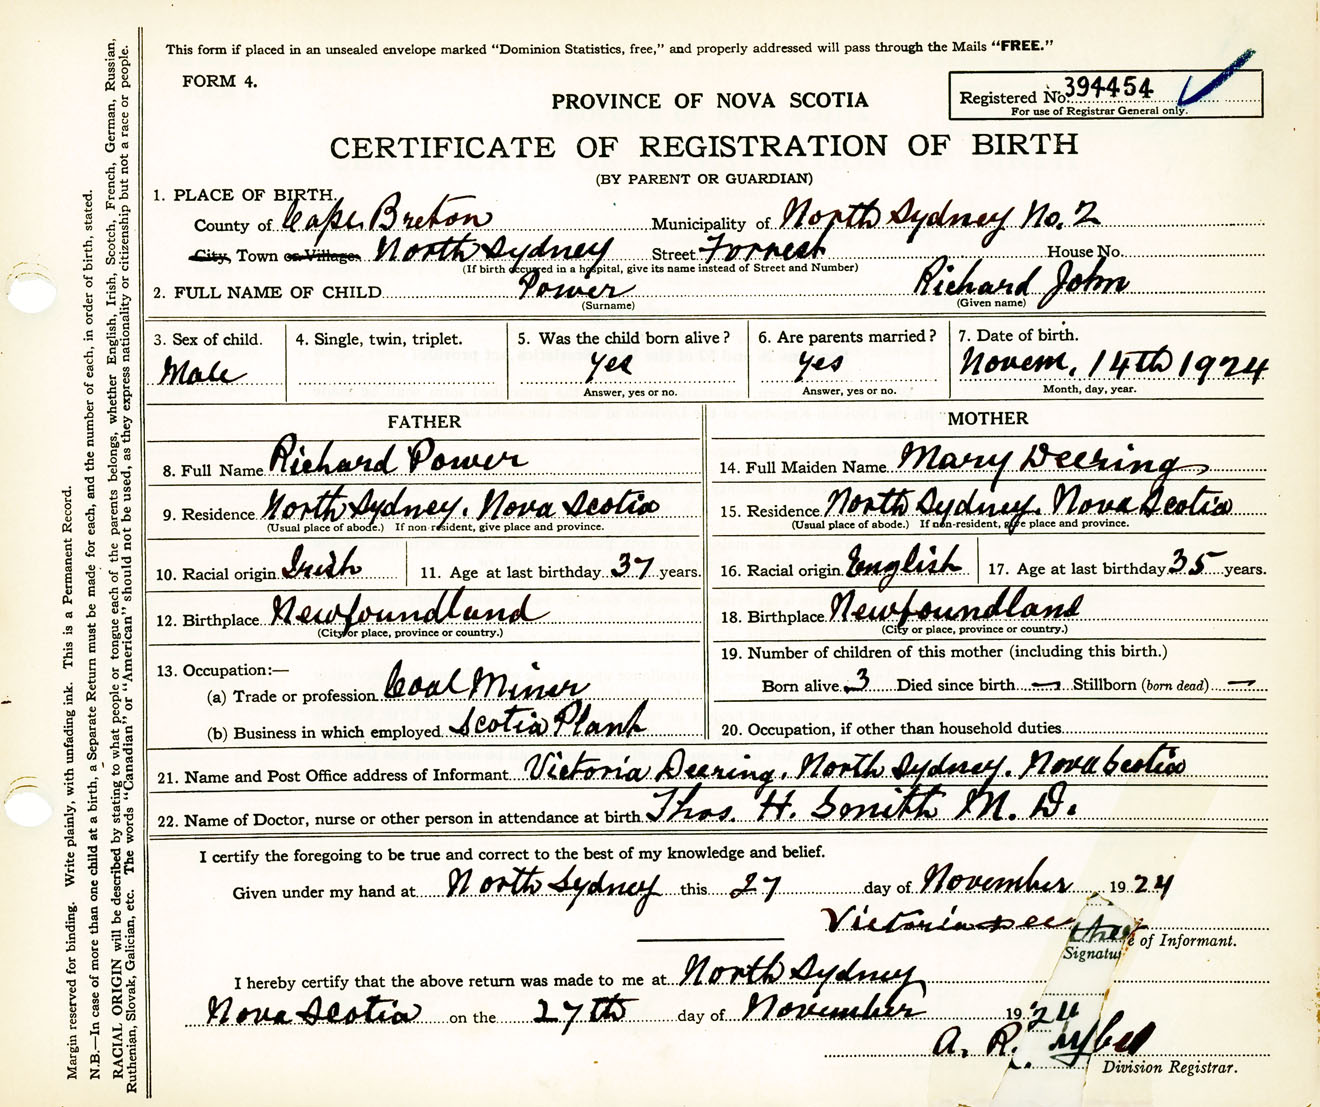 This form if placed in an unsealed envelope marked "Dominion Statistics, free," and properly addressed will pass through the Mails "FREE."
FORM 4.
Registered No. 394454
For use of Registrar General only.
PROVINCE OF NOVA SCOTIA
CERTIFICATE OF REGISTRATION OF BIRTH
(BY PARENT OR GUARDIAN)
1. PLACE OF BIRTH.
County of Cape Breton Municipality of North Sydney No. 2
City, Town or Village. North Sydney Street Forrest House No.
(If birth occurred in a hospital, give its name instead of Street and Number)
2. FULL NAME OF CHILD Power Richard John
(Surname) (Given name)
3. Sex of child. 4. Single, twin, triplet. 5. Was the child born alive? 6. Are parents married? 7. Date of birth.
Male Yes Yes Novem. 14th 1924
Answer, yes or no. Answer, yes or no. Month, day, year.
FATHER MOTHER
8. Full Name Richard Power 14. Full Maiden Name Mary Deering
9. Residence North Sydney, Nova Scotia 15. Residence North Sydney, Nova Scotia
(Usual place of abode.) If non-resident, give place and province. (Usual place of abode.) If non-resident, give place and province.
10. Racial origin Irish 11. Age at last birthday 37 years. 16. Racial origin English 17. Age at last birthday 35 years.
12. Birthplace Newfoundland 18. Birthplace Newfoundland
(City or place, province or country.) (City or place, province or country.)
13. Occupation:— 19. Number of children of this mother (including this birth.)
(a) Trade or profession Coal Miner Born alive 3 Died since birth — Stillborn (born dead) —
(b) Business in which employed Scotia Plant 20. Occupation, if other than household duties
21. Name and Post Office address of Informant Victoria Deering, North Sydney, Nova Scotia
22. Name of Doctor, nurse or other person in attendance at birth Thos. H. Smith M. D.
I certify the foregoing to be true and correct to the best of my knowledge and belief.
Given under my hand at North Sydney this 27 day of November 1924
Victoria
Signature of Informant.
I hereby certify that the above return was made to me at North Sydney
Nova Scotia on the 27th day of November 1924
A. R.
Division Registrar.
Margin reserved for binding. Write plainly, with unfading ink. This is a Permanent Record.
N.B.—In case of more than one child at a birth, a Separate Return must be made for each, and the number of each, in order of birth, stated.
RACIAL ORIGIN will be described by stating to what people or tongue each of the parents belongs, whether English, Irish, Scotch, French, German, Russian,
Ruthenian, Slovak, Galician, etc. The words "Canadian" or "American" should not be used, as they express nationality or citizenship but not a race or people.